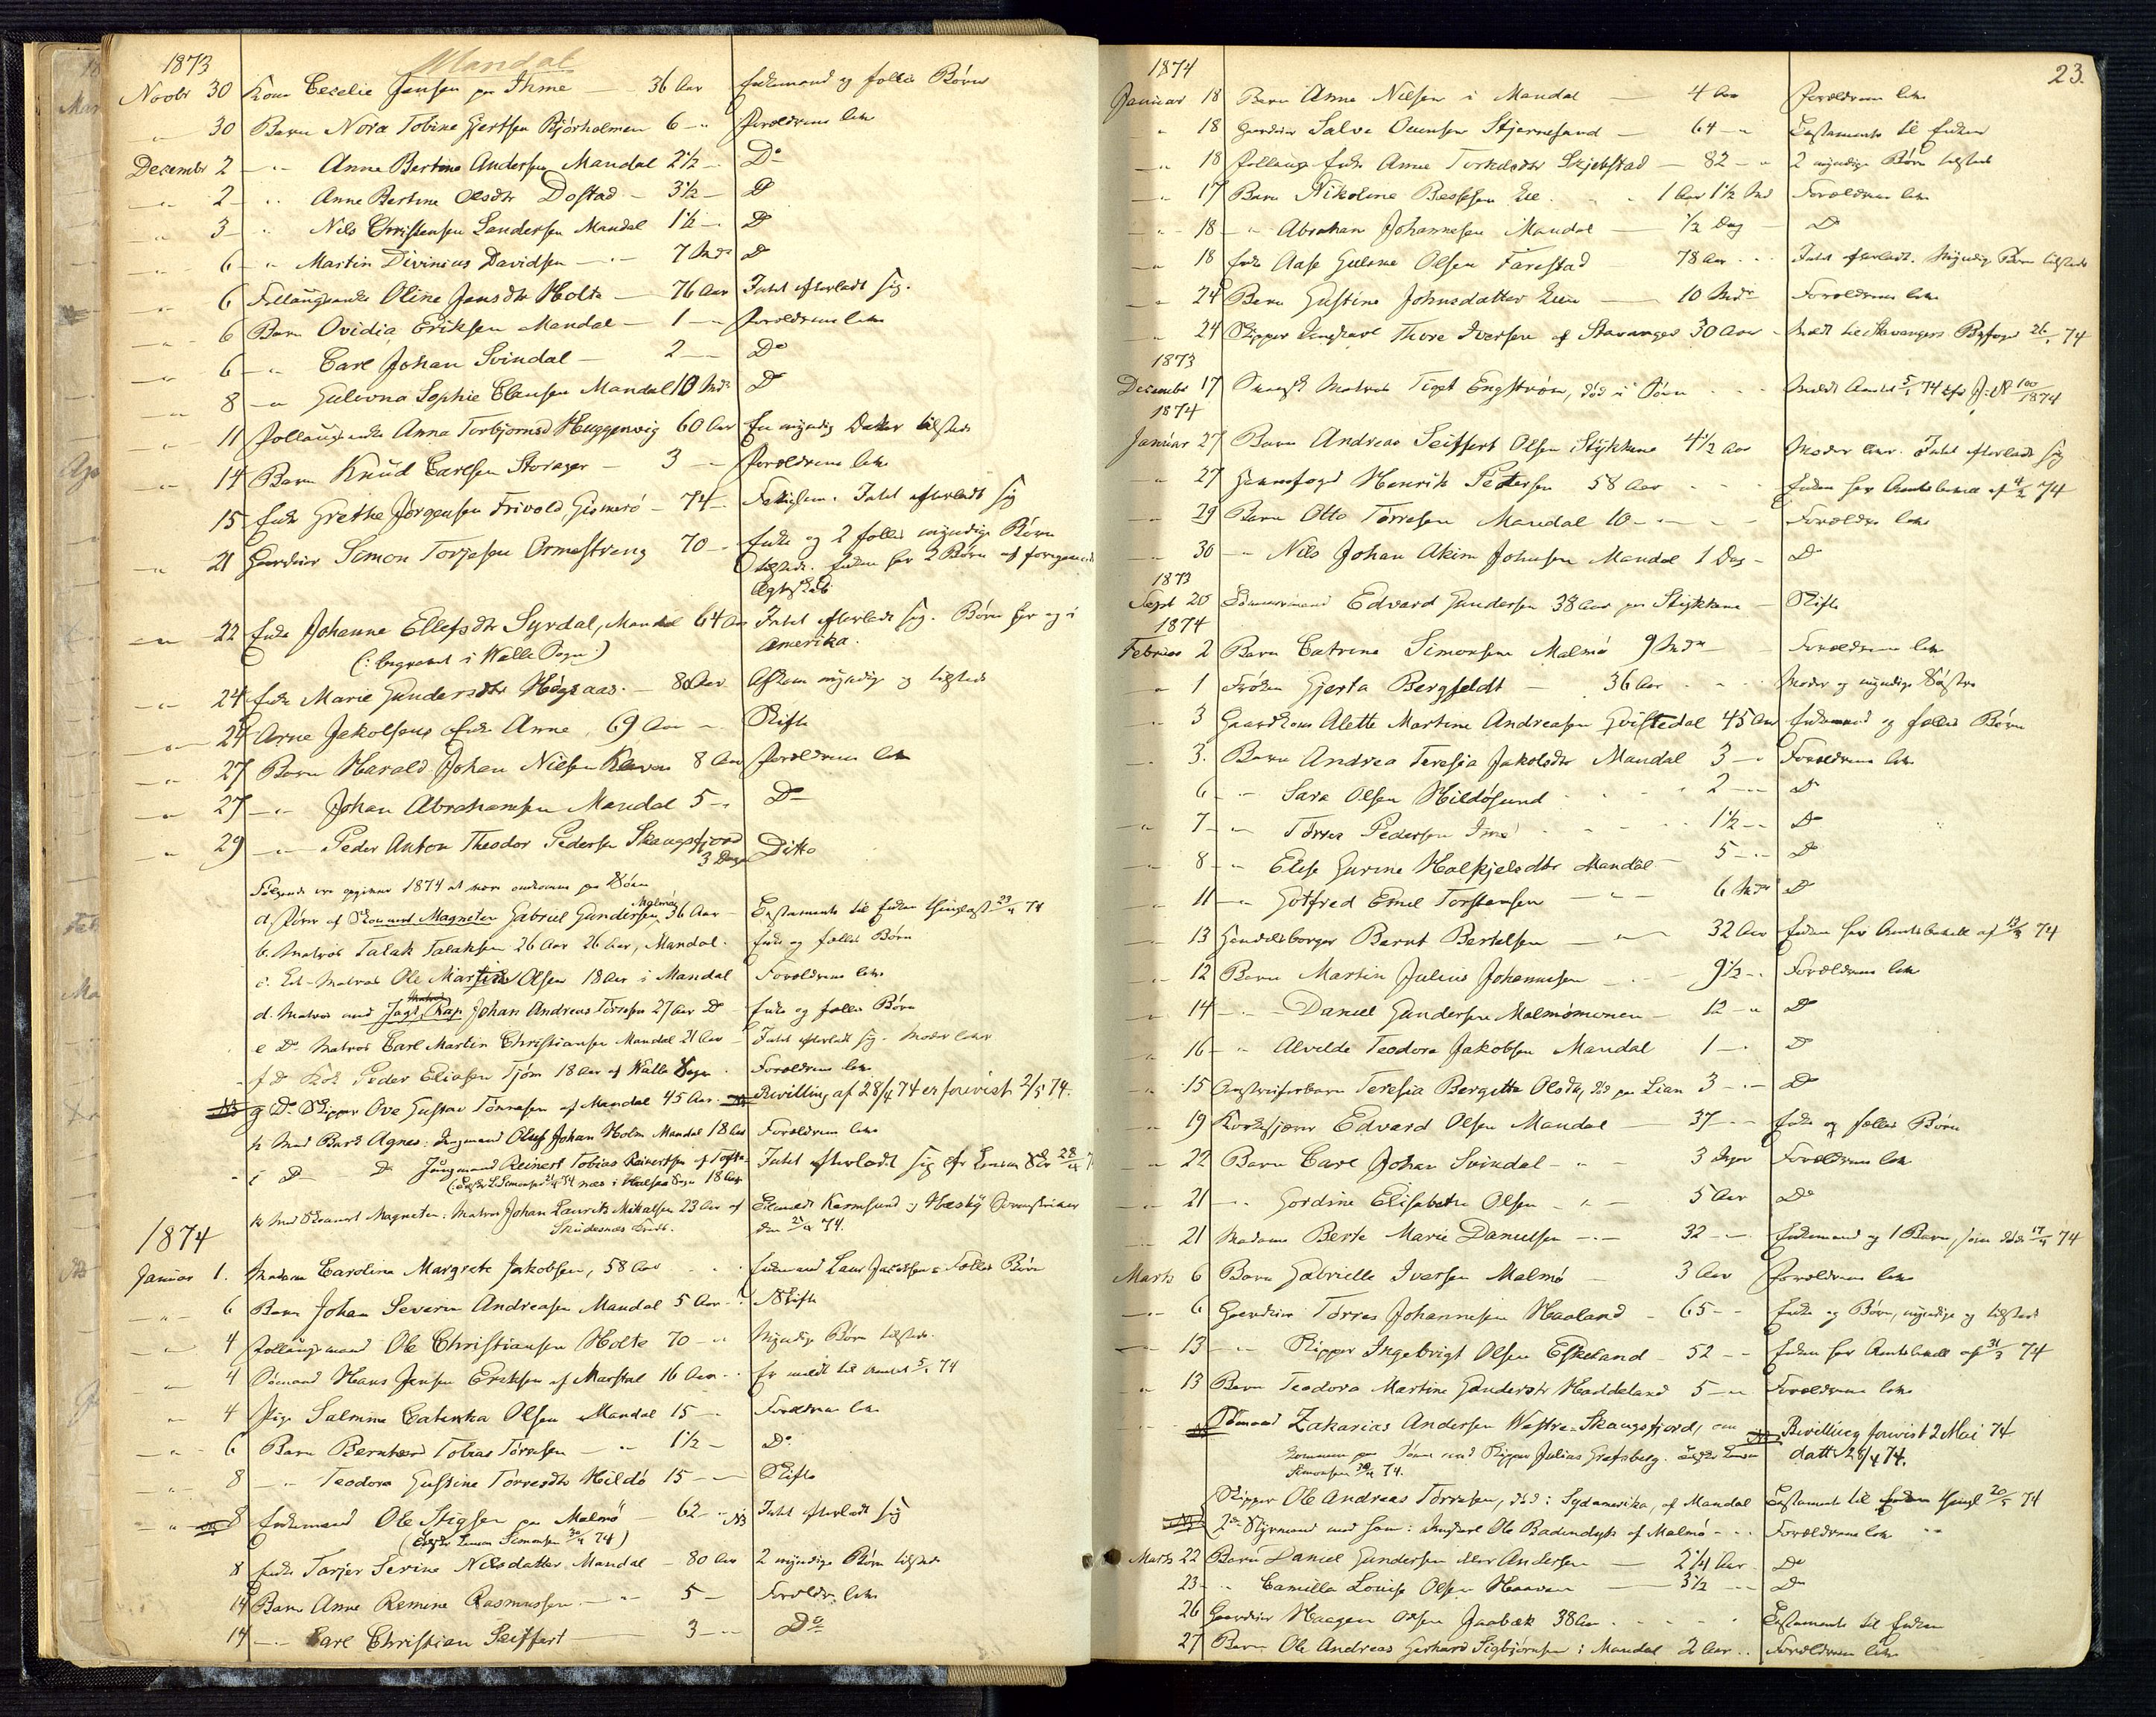 1873 Mandal
Novbr 30 Kone Cecelie Jensen paa Ihme — 36 Aar Enkemand og fælles Børn
" 30 Barn Nora Tobine Gjertsen Bjørholmen 6 — " Forældrene leve
Decembr 2 — " — Anne Bertine Andersen Mandal 2½ — Do
" 2 — " Anne Bertine Olsdtr Dostad — 3½ — D
" 3 — " Nils Christensen Sandersen Mandal 1½ — D
" 6 — " Martin Divinius Davidsen — " — 7 Mdr D
" 6 Follaugsenke Oline Jensdtr Holte — 76 Aar Intet efterladt sig.
" 6 Barn Ovidia Eriksen Mandal — 1 — " Forældrene leve
" 6 — " Carl Johan Svindal — 2 — Do
" 8 — " Gulovna Sophie Clausen Mandal 10 Mdr D
" 11 Follaugsenke Anna Torbjørnsd Huggenvig 60 Aar En myndig Datter tilstede
" 14 Barn Knud Carlsen Storager — 3 — Forældrene leve
15 Enke Grethe Jørgensen Frivold Gismerø — 74 — Fattiglem. Intet efterladt sig
" 21 Gaardbr Simon Torjesen Ormestreng 70 — Enke og 2 fælles myndige Børn
tilstede. Enken har 2 Børn af foregaaende
Ægteskab
" 22 Enke Johanne Ellefsdtr Syrdal, Mandal 64 Aar Intet efterladt sig. Børn her og i
(: begravet i Halle Sogn :) Amerika.
" 24 Enke Marie Gundersdtr Høgsaas. — 80 Aar Afkom myndige og tilstede
" 24 Arne Jakobsens Enke Anne, 69 Aar — Skifte
" 27 Barn Harald Johan Nilsen Kleven 8 Aar Forældrene leve
" 27 — " — Johan Abrahamsen Mandal 5 — " Do
" 29 — " — Peder Anton Theodor Pedersen Skaugsfjord Ditto
3 Dage
Følgende ere opgivne 1874 at være omkomne paa Søen
a. Fører af Skonnert Magneten Gabriel Gundersen, Malmø 36 Aar — Testamente til Enken thinglæst 23/4 74
b. Matros Talak Talaksen 26 Aar 26 Aar, Mandal. Enke og fælles Børn
c. Let-Matros Ole Martin Olsen 18 Aar i Mandal Forældrene leve
d. Matros med Jagt Rap Johan Andreas Tørresen 27 Aar D Enke og fælles Børn
e Do Matros Carl Martin Christiansen Mandal 21 Aar — Intet efterladt sig. Moder lever
f D Kok Peder Eliasen Tjøm 18 Aar af Halle Sogn. Forældrene leve
NB g Do Skipper Ove Gustav Tønnesen af Mandal 45 Aar. NB Bevilling af 28/4 74 er forevist 2/5 74.
h Med Bark Agnes: Jungmand Oluf Johan Holm Mandal 18 Aar Forældrene leve
i D — D Jungmand Reinert Tobias Reinertsen af Tofte Intet efterladt sig efr Lensm 28/4
k Med Skonnert Magneten: Matros Johan Laurits Mikalsen 23 Aar af Tilmeldt Karmsund og Hesby Sorenskriver
Skudesnæs Præst. den 21/4 74.
1874
Januar 1. Madam Caroline Margrete Jakobsen, 58 Aar Enkemand Lars Jacobsen & Fælles Børn
" 6 Barn Johan Severin Andreasen Mandal 5 Aar. Skifte
" 4 Follaugsmand Ole Christiansen Holte 70 — " Myndige Børn tilstede.
" 4 Sømand Hans Jensen Eriksen af Marstal 16 Aar. Er meldt til Amtet 5/1 74
" 4 Pige Salmine Catinka Olsen Mandal 15 — Forældrene leve
" 6 Barn Bernhard Tobias Tørresen — " 1½ — Do
8 — " Teodora Gustine Tørresdtr Hildø 15 — Skifte
" 8 Enkemand Ole Stigsen paa Malmø — 62 — " NB Intet efterladt sig
(Efter Lensm Simonsen 30/4 74)
8 Enke Tarjer Serine Nilsdatter Mandal — 80 Aar 2 myndige Børn tilstede
14 Barn Anne Remine Rasmussen — " — 5 — Forældre leve
14 — " Carl Christian Seiffert — 3 — " Do
23.
1874
Januar 18 Barn Anne Nilsen i Mandal — 4 Aar Forældrene leve
" 18 Gaardbr Salve Ouensen Stjernesund — 64 — " Testamente til Enken
" 18 Follaugs-Enke Anne Torkelsdtr Skjebstad — 82 — " 2 myndige Børn tilstede
" 17 Barn Nikoline Bessesen Lie. 1 Aar 1½ Md Forældrene leve
" 18 — " Abraham Johannesen Mandal — ½ Dag — D
" 18 Enke Aase Gulene Olsen Farestad 78 Aar Intet efterladt. Myndige Børn tilstede
" 24 Barn Gustine Johnsdatter Lian — 10 Mdr Forældrene leve
" 24 Skipper Ungkarl Thore Iversen af Stavanger 30 Aar — Meldt til Stavangers Byfoged 26/1 74
1873
Decembr 17 Svensk Matros Tiget Engstrøm, død i Søen Meldt Amtet 5/1 74 efr J: N 100/1874
1874
Januar 27 Barn Andreas Seiffert Olsen Stykkene 4½ Aar Moder lever. Intet efterladt sig
" 27 Havnefoged Henrik Pedersen 58 Aar Enken har Amtsbevill af 4/2 74
" 29 Barn Otto Tørresen Mandal 10 — Forældre leve
" 30 — " Nils Johan Akim Johnsen Mandal 1 Dag — D
1873
Sept 20 Tømmermand Edvard Gundersen 38 Aar paa Stykkene — Skifte
1874
Februar 2 Barn Catrine Simonsen Malmø 9 Mdr — Forældrene leve
" 1 Frøken Gjerta Bergfeldt — 36 Aar Moder og myndige Søstre
" 3 Gaardkone Alette Martine Andreasen Qvistedal 45 Aar Enkemand og fælles Børn
3. Barn Andrea Teresia Jakobsdtr Mandal 3 — " Forældrene leve
6 — " Sara Olsen Hildøsund 2 — D
7 — " Tørres Pedersen Ime 1½ — D
" 8 — " Elise Gurine Halkjelsdtr Mandal — 5 — D
" 11 — " Gotfred Emil Torstensen — " — 6 Mdr D
" 13 Handelsborger Bernt Bertelsen — " — 32 Aar Enken har Amtsbevill af 12/3 74
" 12 Barn Martin Julius Johannesen — 9½ — Forældrene leve
" 14 — " Daniel Gundersen Malmømonen — 12 — " D
" 16 — " Alvilde Teodora Jakobsen Mandal 1 — D
" 15 Omstreiferbarn Teresia Bergitta Olsdtr, død paa Lian 3 — " Do
" 19 Korkskjærer Edvard Olsen Mandal — 37 — Enke og fælles Børn
" 22 Barn Carl Johan Svindal — " — 3 Dage Forældrene leve
" 21 — " Gordine Elisabeth Olsen — " — 5 Aar Do
" 21 Madame Berte Marie Danielsen — " — 32 — Enkemand og 1 Barn, som døde 17/4 74
Marts 6 Barn Gabrielle Iversen Malmø — 3 Aar Forældrene leve
" 6 Gaardbr Tørres Johannesen Haaland — 65 — Enke og Børn, myndige og tilstede
" 13 — " Skipper Ingebrigt Olsen Eskeland — 52 — Enken har Amtsbevill af 31/3 74
" 13 Barn Teodora Martine Gundersdtr Haddeland 5 — " Forældrene leve
NB Sømand Zakarias Andersen Westre-Skaugsfjord, om NB Bevilling forevist 2 Mai 74
kommen paa Søen med Skipper Julius Grefsberg. Efter Lensm datt 28/4 74.
Simonsen 30/4 74.
Skipper Ole Andreas Tørresen, død i Sydamerika, af Mandal Testament til Enken thingl 20/5 74
2den Styrmand med ham: Ungkarl Ole Badendyk af Malmø Forældrene leve "
Marts 22 Barn Daniel Gundersen eller Andersen — 2¼ Aar Do
23 — " Camilla Louise Olsen Haaven — 3½ — D
26 Gaardbr Haagen Olsen Jaabæk 38 Aar. Testamente til Enken
27 Barn Ole Andreas Gerhard Sigbjørnsen i Mandal 2 Aar. Forældrene leve